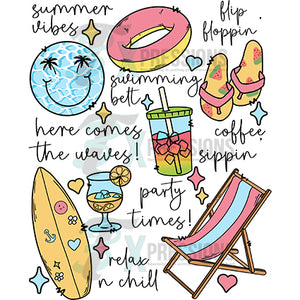 summer
vibes
flip
floppin'
swimming
belt
here comes
the waves!
coffee
sippin
party
times!
relax
n chill
XPRESSIONS